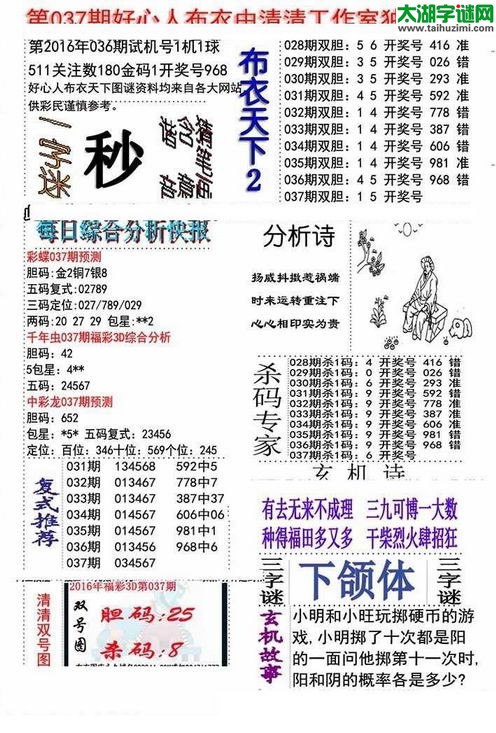 太湖字谜网
www.taihuzimi.com
第037期好心人布衣由清清工作室独
第2016年036期试机号1机1球
511关注数180金码1开奖号968
好心人布衣天下图谜资料均来自各大网站
供彩民谨慎参考。
一字迷
秒
布衣天下2
028期双胆：5 6 开奖号 416 准
029期双胆：3 5 开奖号 026 错
030期双胆：3 5 开奖号 293 准
031期双胆：4 5 开奖号 592 准
032期双胆：1 4 开奖号 778 错
033期双胆：1 4 开奖号 377 错
034期双胆：1 4 开奖号 606 错
035期双胆：1 4 开奖号 981 准
036期双胆：4 5 开奖号 968 错
037期双胆：1 5 开奖号
每日综合分析快报
彩蝶037期预测
胆码：金2铜7银8
五码复式：02789
三码定位：027/789/029
两码：20 27 29 包星：**2
千年虫037期福彩3D综合分析
胆码：42
5包星：4**
五码：24567
中彩龙037期预测
胆码：652
包星：*5* 五码复式：23456
定位：百位：346十位：569个位：245
分析诗
扬威抖擞惹祸端
时来运转重注下
心心相印实为贵
杀码专家
028期杀1码：4 开奖号 416 错
029期杀1码：0 开奖号 026 错
030期杀1码：6 开奖号 293 准
031期杀1码：9 开奖号 592 错
032期杀1码：9 开奖号 778 准
033期杀1码：9 开奖号 377 准
034期杀1码：9 开奖号 606 准
035期杀1码：9 开奖号 981 错
036期杀1码：9 开奖号 968 错
037期杀1码：6 开奖号
复式推荐
031期 134568 592中5
032期 013467 778中7
033期 013467 377中37
034期 014567 606中06
035期 014567 981中1
036期 013567 968中6
037期 034567
玄机诗
有去无来不成理 三九可博一大数
种得福田多又多 干柴烈火肆招狂
清清双号图
2016年福彩3D第037期
双号图
胆码：25
杀码：8
三字谜
下颌体
三字谜
玄机故事
小明和小旺玩掷硬币的游
戏,小明掷了十次都是阳
的一面问他掷第十一次时,
阳和阴的概率各是多少?